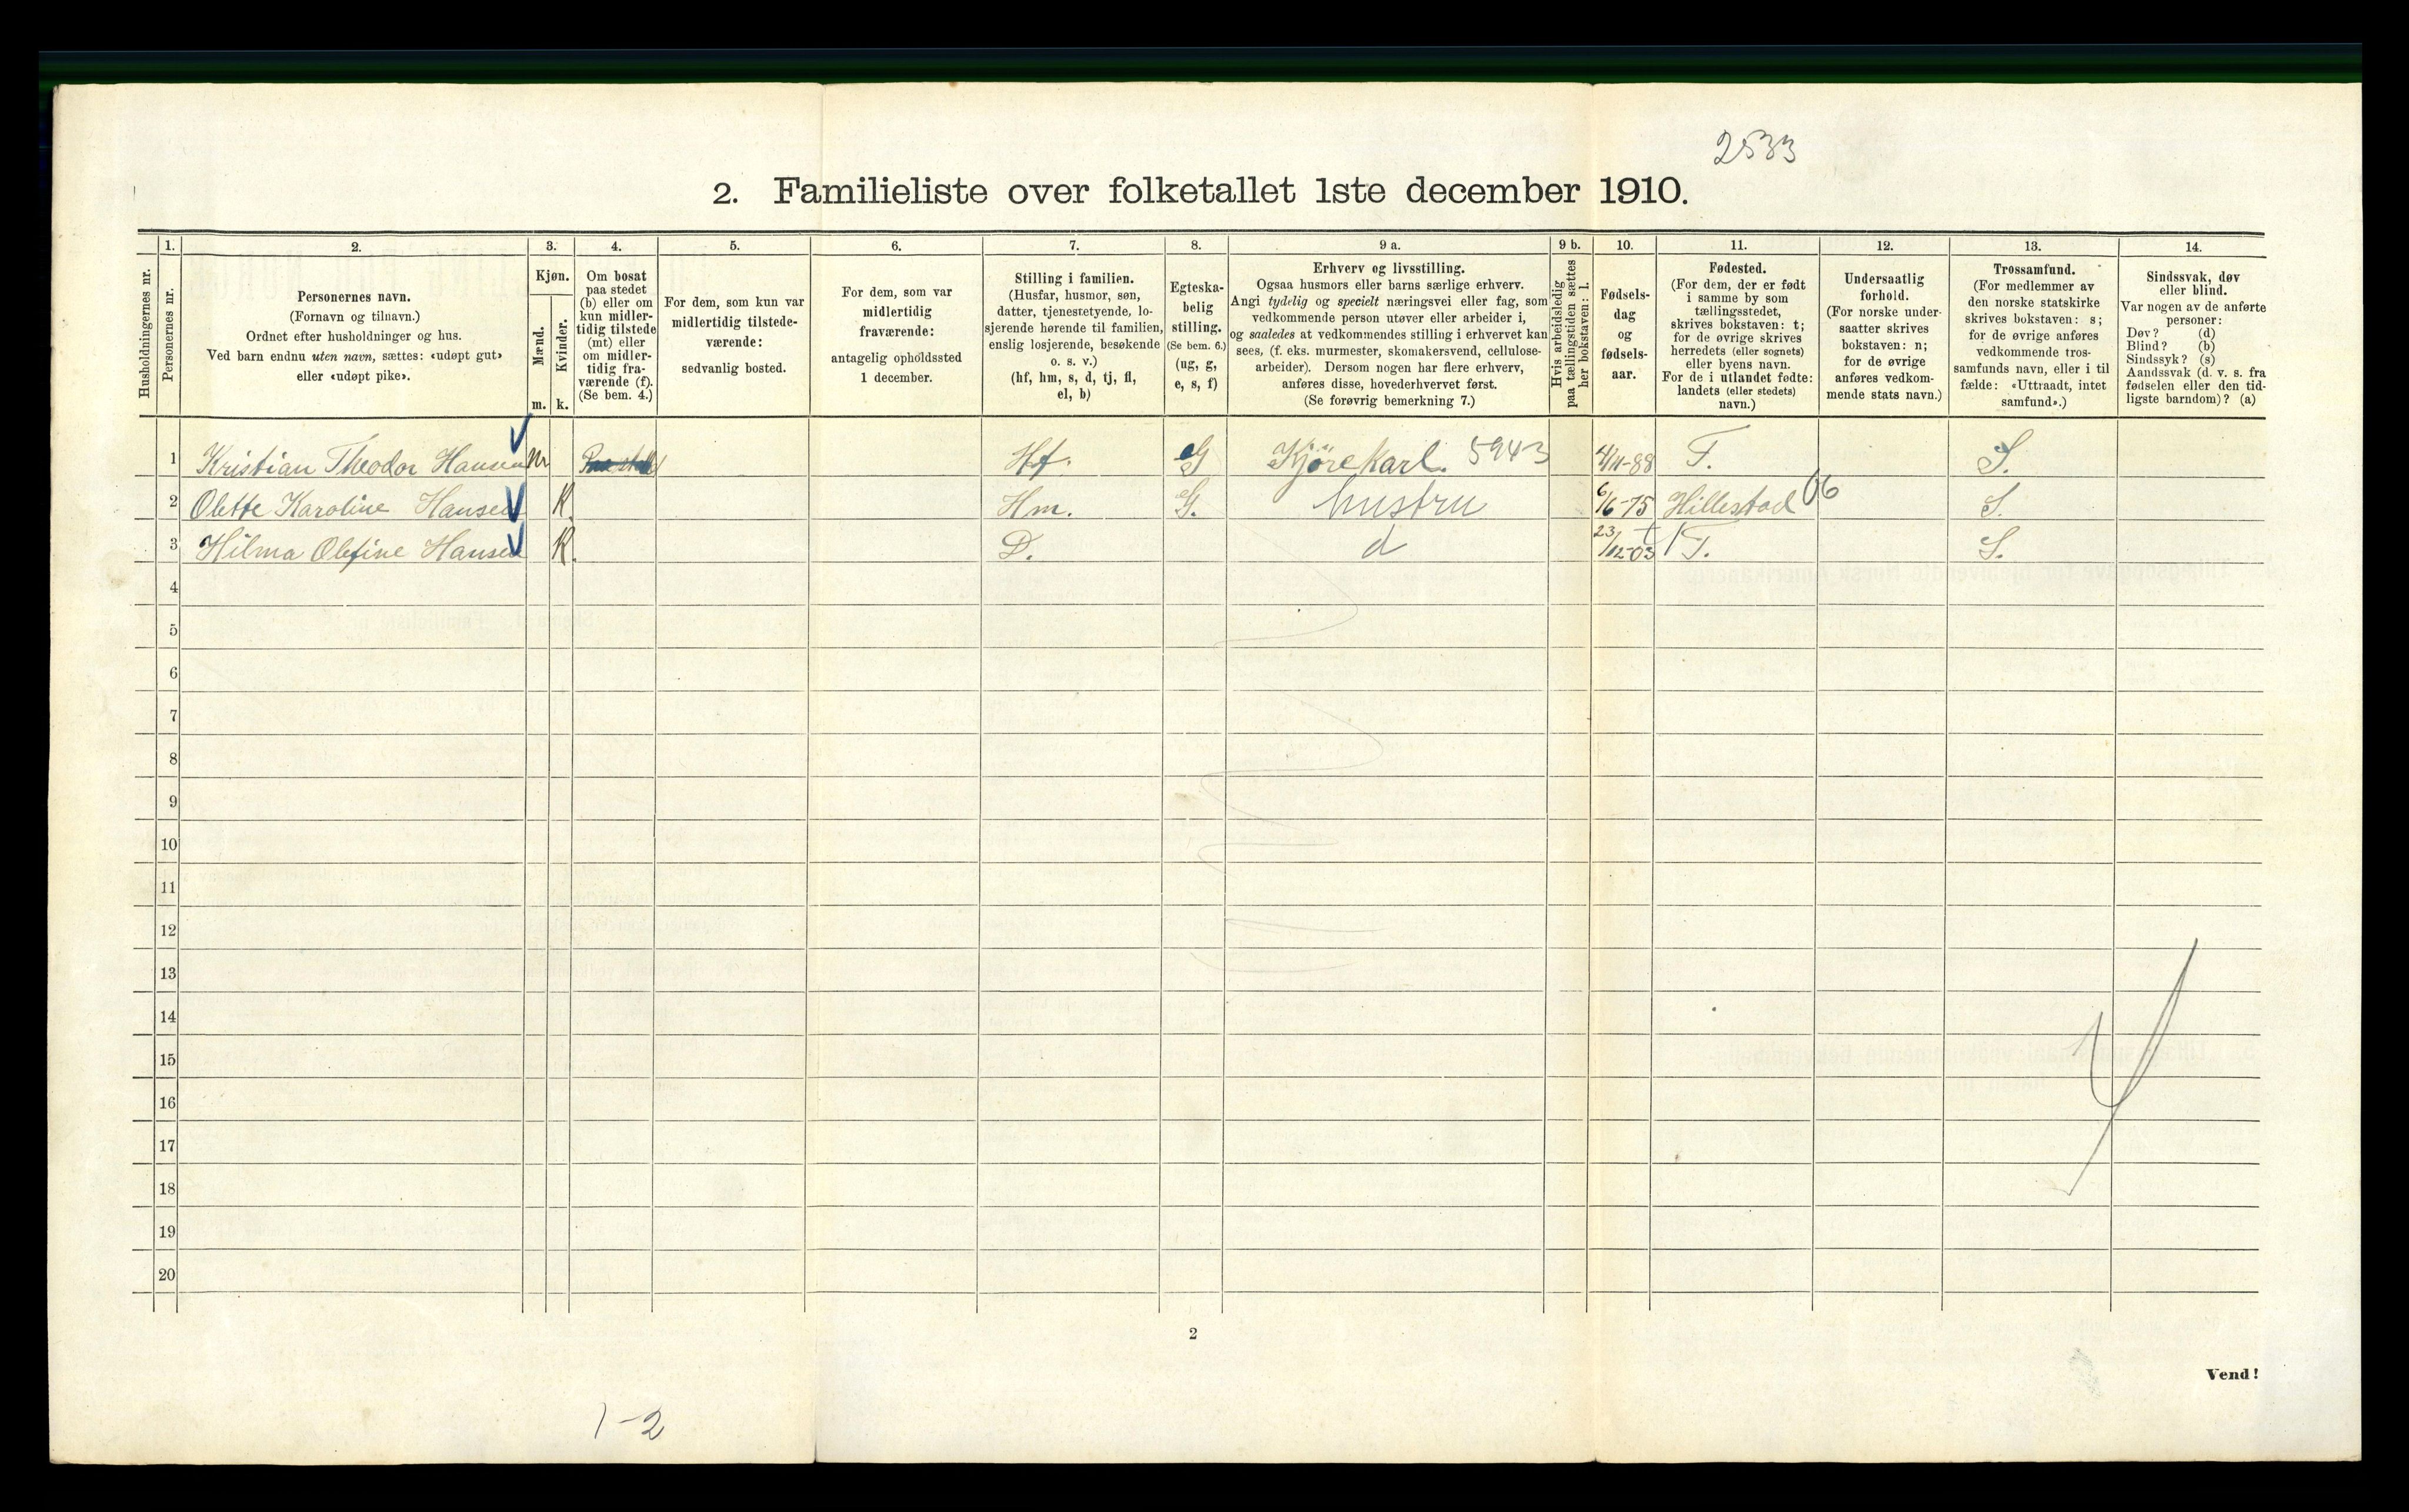 2533
2. Familieliste over folketallet 1ste december 1910.
1. 2. 3. 4. 5. 6. 7. 8. 9 a. 9 b. 10. 11. 12. 13. 14.
Husholdningernes nr.
Personernes nr.
Personernes navn.
(Fornavn og tilnavn.)
Ordnet efter husholdninger og hus.
Ved barn endnu uten navn, sættes: «udøpt gut»
eller «udøpt pike».
Kjøn.
Mænd.
Kvinder.
m. k.
Om bosat
paa stedet
(b) eller om
kun midler-
tidig tilstede
(mt) eller
om midler-
tidig fra-
værende (f).
(Se bem. 4.)
For dem, som kun var
midlertidig tilstede-
værende:
sedvanlig bosted.
For dem, som var
midlertidig
fraværende:
antagelig opholdssted
1 december.
Stilling i familien.
(Husfar, husmor, søn,
datter, tjenestetyende, lo-
sjerende hørende til familien,
enslig losjerende, besøkende
o. s. v.)
(hf, hm, s, d, tj, fl,
el, b)
Egteska-
belig
stilling.
(Se bem. 6.)
(ug, g,
e, s, f)
Erhverv og livsstilling.
Ogsaa husmors eller barns særlige erhverv.
Angi tydelig og specielt næringsvei eller fag, som
vedkommende person utøver eller arbeider i,
og saaledes at vedkommendes stilling i erhvervet kan
sees, (f. eks. murmester, skomakersvend, cellulose-
arbeider). Dersom nogen har flere erhverv,
anføres disse, hovederhvervet først.
(Se forøvrig bemerkning 7.)
Hvis arbeidsledig
paa tællingstiden sættes
her bokstaven: l.
Fødsels-
dag
og
fødsels-
aar.
Fødested.
(For dem, der er født
i samme by som
tællingsstedet,
skrives bokstaven: t;
for de øvrige skrives
herredets (eller sognets)
eller byens navn.
For de i utlandet fødte:
landets (eller stedets)
navn.)
Undersaatlig
forhold.
(For norske under-
saatter skrives
bokstaven: n;
for de øvrige
anføres vedkom-
mende stats navn.)
Trossamfund.
(For medlemmer av
den norske statskirke
skrives bokstaven: s;
for de øvrige anføres
vedkommende tros-
samfunds navn, eller i til
fælde: «Uttraadt, intet
samfund».)
Sindssvak, døv
eller blind.
Var nogen av de anførte
personer:
Døv? (d)
Blind? (b)
Sindssyk? (s)
Aandssvak (d. v. s. fra
fødselen eller den tid-
ligste barndom)? (a)
1 Kristian Theodor Hansen Hf. G Kjörekarl. 5943 4/11-88 T. S.
2 Olette Karoline Hansen K. Hm. G. hustru 6/6-75 Hillestad 06 S.
3 Hilma Olefine Hansen K. D. d 23/12-03 T. S.
4
5
6
7
8
9
10
11
12
13
14
15
16
17
18
19
20
2
Vend!
1-2